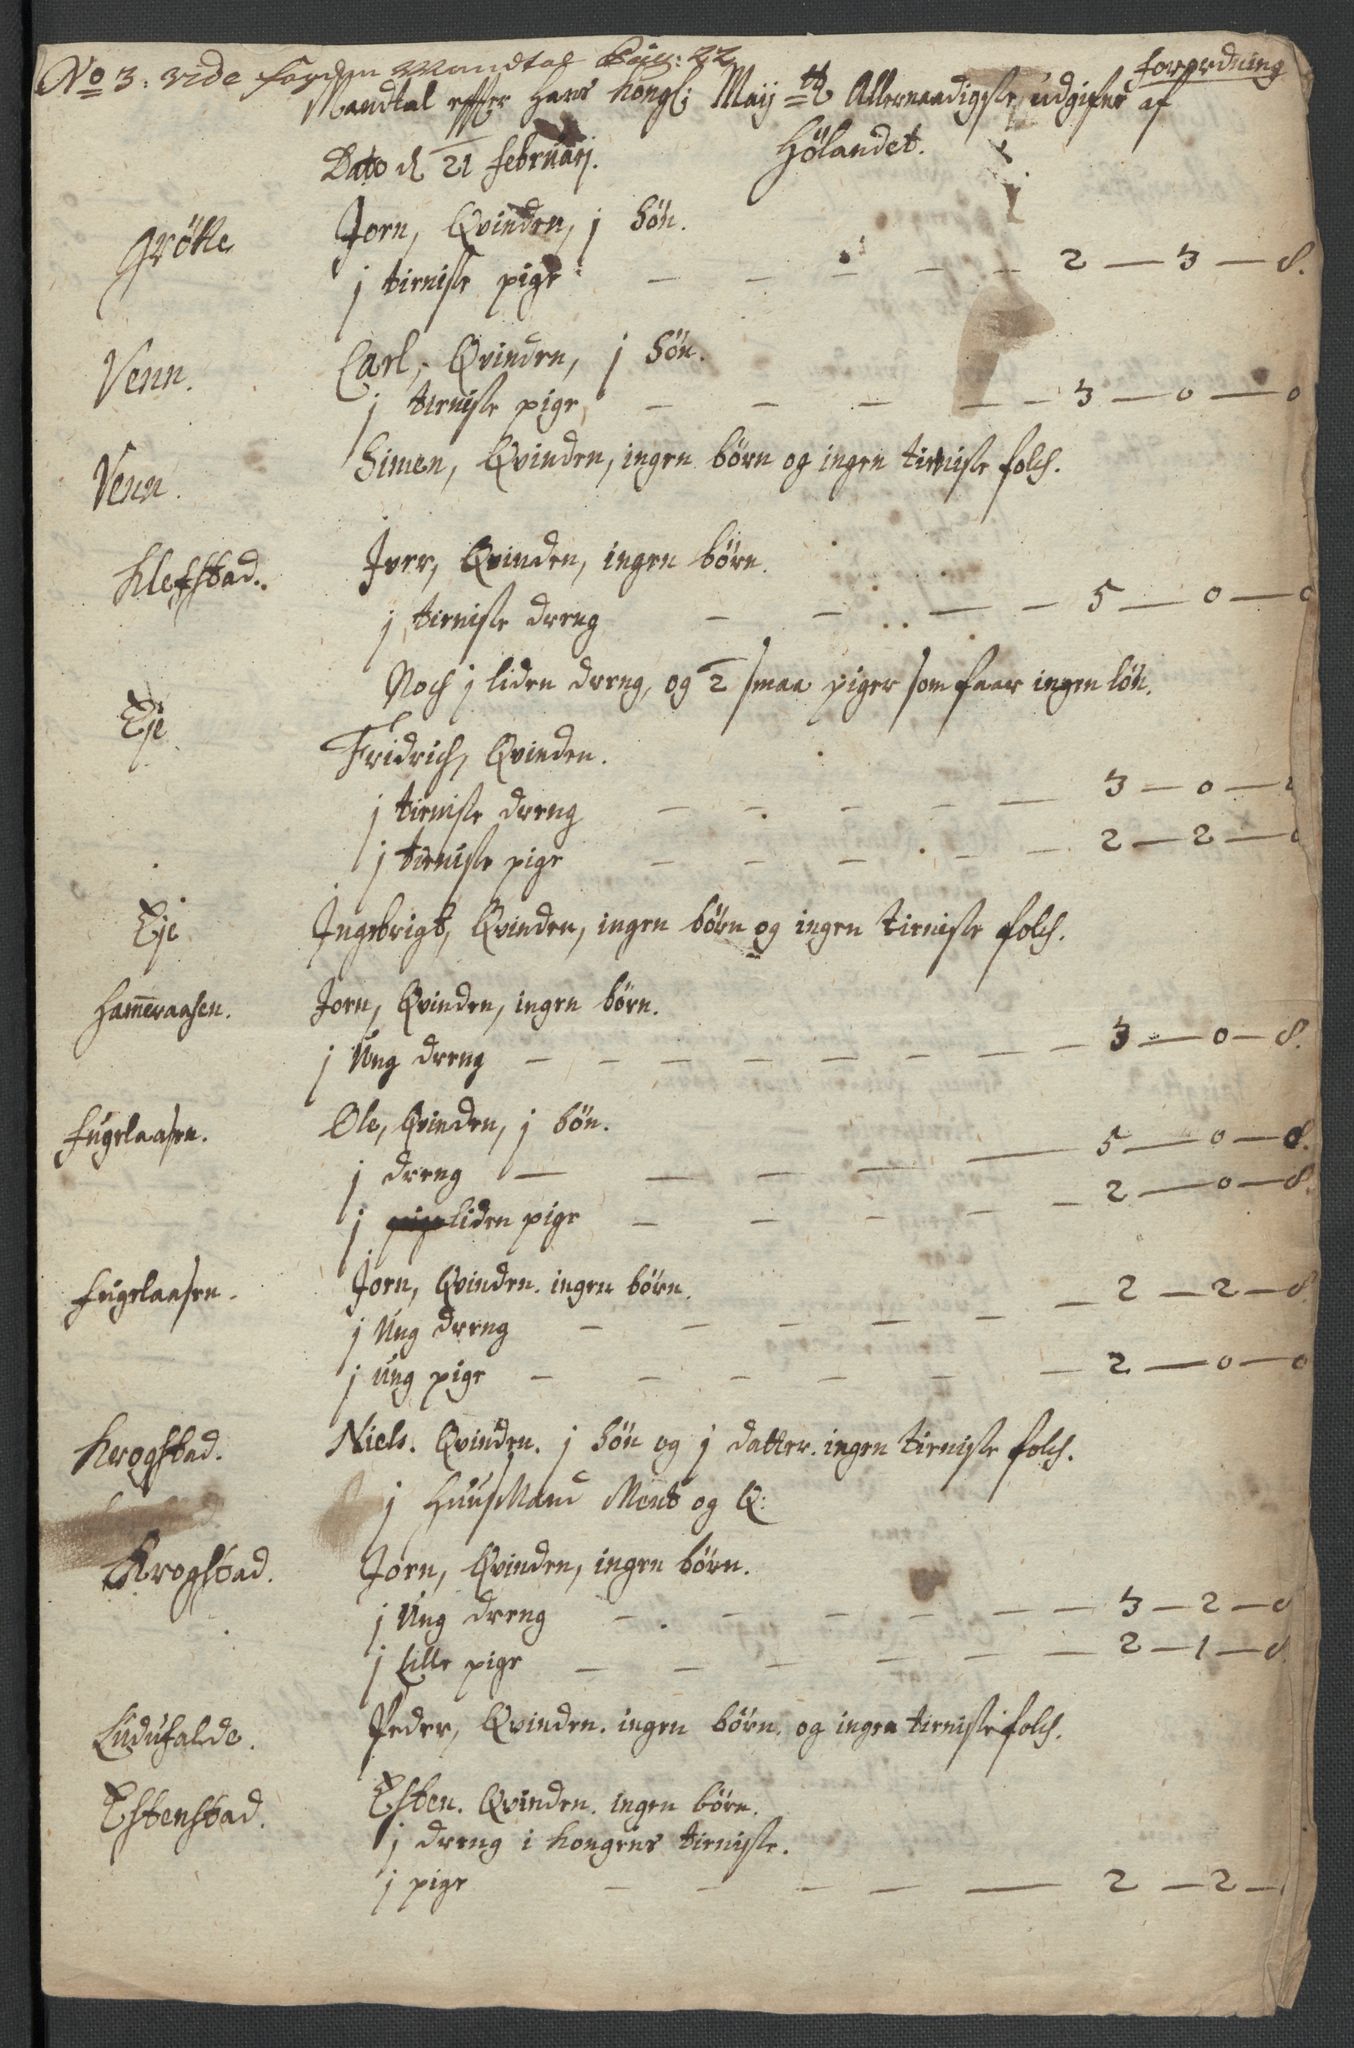 No 3: vide Mandtal Pag: 22
forordning
Mandtal effter Hans Kongl: Maij tt Allernaadigste udgifne af
Dato d 21 februarij. Hölandet.
Grötte Jorn, Qvinden, j Sön.
j tieniste pige — — — — — 2 — 3 — 8.
Venn. Carl, Qvinden, j Sön.
j tieniste pige, — — — — — 3 — 0 — 0
Venn. Simen, Qvinden, ingen börn og ingen tieniste folch.
Klefstad. Jver, Qvinden, ingen börn.
j tieniste dreng — — — — 5 — 0 — 0
Noch j liden dreng, og 2 smaa piger som faar ingen lön.
Eje Fridrich, Qvinden.
j tieniste dreng — — — — — 3 — 0 —
j tieniste pige — — — — — 2 — 2 —
Eje Ingebrigt, Qvinden, ingen börn og ingen tieniste folch.
Hameraasen. Jorn, Qvinden, ingen börn.
j Ung dreng — — — — — — — — 3 — 0 — 8.
Fugelaasen. Ole, Qvinden, j Sön.
j dreng — — — — — 5 — 0 — 8.
j liden pige — — — — — 2 — 0 — 8.
Fugelaasen. Jorn, Qvinden. ingen börn.
j Ung dreng — — — — — — 2 — 2 — 8.
j ung pige — — — — — — 2 — 0 — 0
Krogstad. Niels. Qvinden. j Sön og j datter. ingen tieniste folch.
j Huusmand Ment og Q:
Krogstad. Jorn, Qvinden, ingen börn.
j Ung dreng — — — — — — 3 — 2 — 0
j Lille pige — — — — — — 2 — 1 — 8.
Ludufalde. Peder, Qvinden. ingen börn. og ingen tieniste folch.
Estenstad. Esten. Qvinden. ingen börn.
j dreng i Kongens tieniste.
j pige — — — — — 2 — 2 —